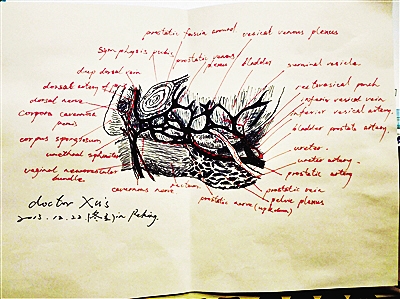 prostatic fascia around
vesical venous plexus
symphysis pubic
prostatic venous
plexus
bladder
seminal vesicle
deep dorsal vein
dorsal artery of penis
rectovesical pouch
dorsal nerve
inferior vesical vein
corpora cavernosa
penis
inferior vesical artery
bladder prostate artery
corpus spongiosum
ureter
urethral sphincter
ureter artery
vaginal neurovascular
bundle
prostatic artery
cavernous nerve
rectum
prostatic vein
prostatic nerve
pelvic plexus
doctor Xu's
2015.12.22 in Peking